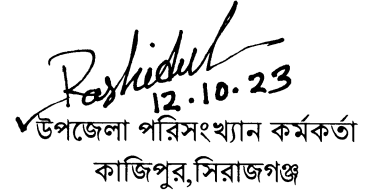 Rashidul
12.10.23
উপজেলা পরিসংখ্যান কর্মকর্তা
কাজিপুর,সিরাজগঞ্জ